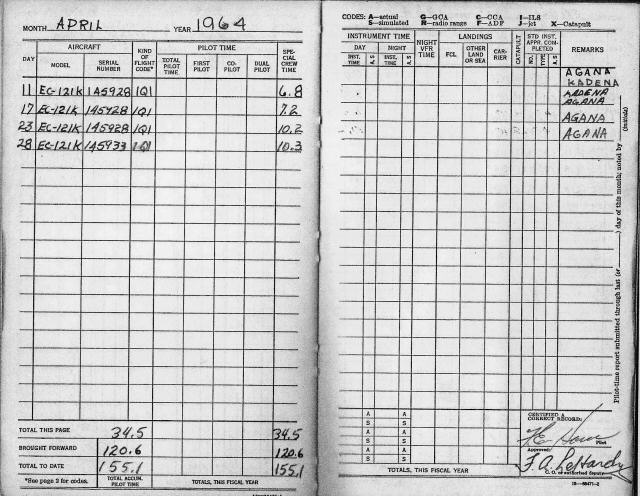 MONTH APRIL YEAR 1964
AIRCRAFT PILOT TIME
DAY MODEL SERIAL NUMBER KIND OF FLIGHT CODE* TOTAL PILOT TIME FIRST PILOT CO-PILOT DUAL PILOT SPECIAL CREW TIME
11 EC-121K 145928 1Q1 6.8
17 EC-121K 145928 1Q1 7.2
23 EC-121K 145928 1Q1 10.2
28 EC-121K 145933 1Q1 10.3
TOTAL THIS PAGE 34.5 34.5
BROUGHT FORWARD 120.6 120.6
TOTAL TO DATE 155.1 155.1
*See page 2 for codes. TOTAL ACCUM. PILOT TIME TOTALS, THIS FISCAL YEAR
CODES: A—actual G—GCA C—CCA I—ILS
S—simulated R—radio range F—ADF J—jet X—Catapult
INSTRUMENT TIME NIGHT VFR TIME LANDINGS CATAPULT STD INST. APPR. COMPLETED REMARKS
DAY NIGHT FCL OTHER LAND OR SEA CARRIER
INST. TIME A S INST. TIME A S NO. TYPE A S
AGANA
KADENA
KADENA
AGANA
AGANA
AGANA
Pilot-time report submitted through last (or ) day of this month; noted by (initials)
A A
S S
A A
S S
A A
S S
TOTALS, THIS FISCAL YEAR
CERTIFIED A CORRECT RECORD:
Pilot
Approved:
F. A. LeHardy
C. O. or authorized deputy